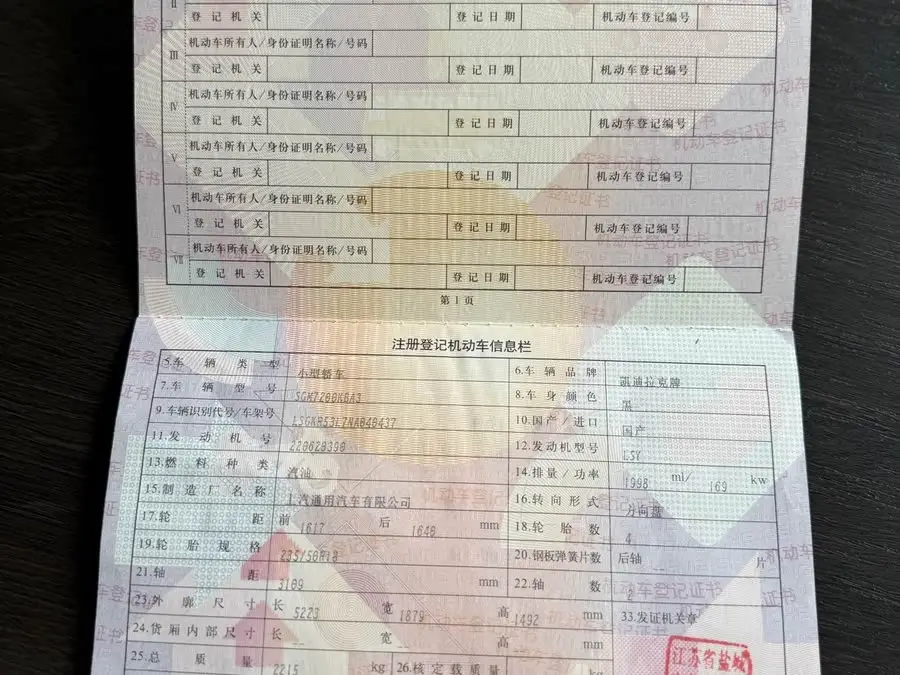 II 登记机关 登记日期 机动车登记编号
III 机动车所有人/身份证明名称/号码
登记机关 登记日期 机动车登记编号
IV 机动车所有人/身份证明名称/号码
登记机关 登记日期 机动车登记编号
V 机动车所有人/身份证明名称/号码
登记机关 登记日期 机动车登记编号
VI 机动车所有人/身份证明名称/号码
登记机关 登记日期 机动车登记编号
VII 机动车所有人/身份证明名称/号码
登记机关 登记日期 机动车登记编号
第1页
注册登记机动车信息栏
5.车辆类型 小型轿车 6.车辆品牌 凯迪拉克牌
7.车辆型号 8.车身颜色 黑
9.车辆识别代号/车架号 10.国产/进口 国产
11.发动机号 220620390 12.发动机型号 LSY
13.燃料种类 汽油 14.排量/功率 1998 ml/ 169 kw
15.制造厂名称 上汽通用汽车有限公司 16.转向形式 方向盘
17.轮距 前 1617 后 1640 mm 18.轮胎数 4
19.轮胎规格 235/50R18 20.钢板弹簧片数 后轴 片
21.轴距 3109 mm 22.轴数 2
23.外廓尺寸 长 5223 宽 1879 高 1492 mm 33.发证机关章
24.货厢内部尺寸 长 -- 宽 -- 高 -- mm
江苏省盐城
25.总质量 2215 kg 26.核定载质量 -- kg